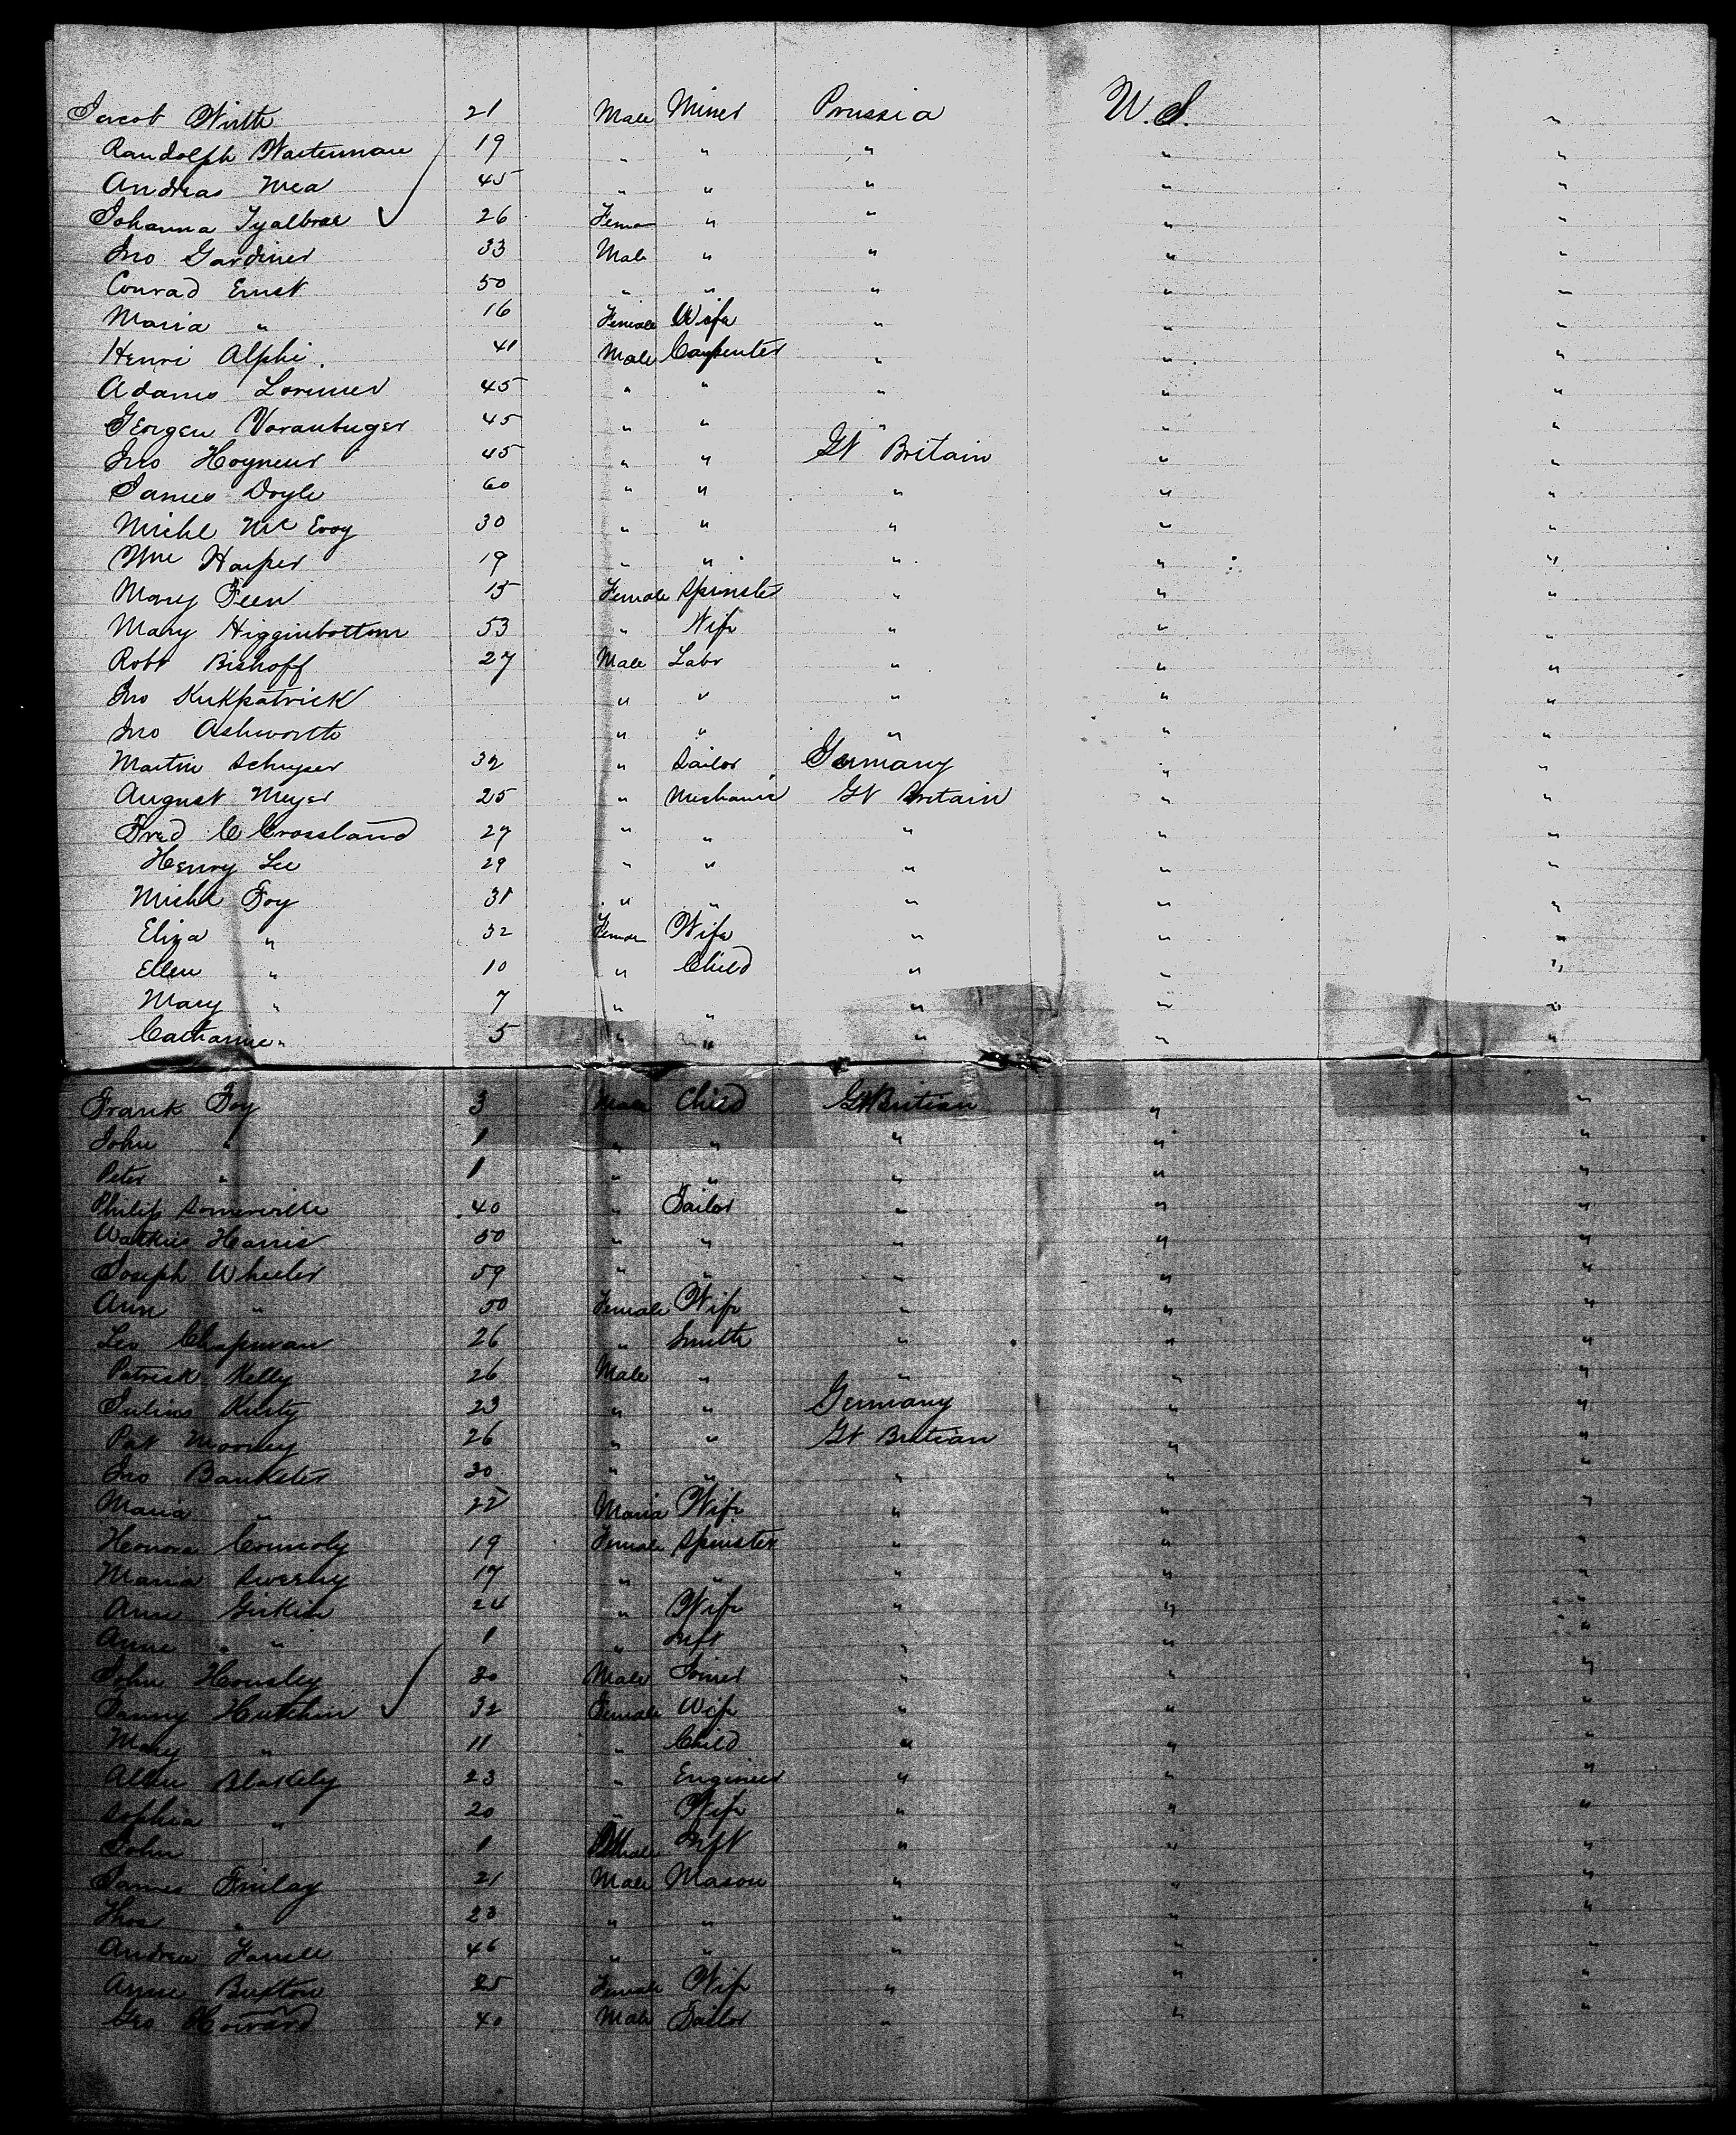 Jacob Wirth 21 Male Miner Prussia U.S. "
Randolph Wasterman 19 " " " " "
Andreas Mea 45 " " " " "
Johanna Tyalbrae ✓ 26 Fema " " " "
Jno Gardiner 33 Male " " " "
Conrad Ernst 50 " " " " "
Maria " 16 Female Wife " " "
Henri Alphi 41 Male Carpenter " " "
Adams Lorimer 45 " " " " "
Georgen Voranbuger 45 " " " " "
Jno Hoyneur 45 " " Gt Britain " "
James Doyle 60 " " " " "
Michl McEvoy 30 " " " " "
Wm Harper 19 " " " " "
Mary Feen 15 Female Spinster " " "
Mary Higginbottom 53 " Wife " " "
Robt Bishoff 27 Male Labr " " "
Jno Kirkpatrick " " " " "
Jno Ashworth " " " " "
Martin Schuyser 32 " Sailor Germany " "
August Meyer 25 " Mechanic Gt Britain " "
Fred C Crossland 27 " " " " "
Henry Lee 29 " " " " "
Michl Foy 31 " " " " "
Eliza " 32 Femae Wife " " "
Ellen " 10 " Child " " "
Mary " 7 " " " " "
Catharine " 5 " " " " "
Frank Foy 3 Male Child Gt Britian " "
John " 1 " " " " "
Peter " 1 " " " " "
Philip Somerville 40 " Tailor " " "
Watkins Harris 50 " " " " "
Joseph Wheeler 59 " " " " "
Ann " 50 Female Wife " " "
Leo Chapman 26 " Smith " " "
Patrick Kelly 26 Male " " " "
Julius Kirsty 23 " " Germany " "
Pat Moorley 26 " " Gt Britian " "
Jno Bankster 30 " " " " "
Maria " 22 Maria Wife " " "
Honora Connoly 19 Female Spinster " " "
Maria Swerny 17 " " " " "
Ann Girkin 24 " Wife " " "
Anne " " 1 " Inft " " "
John Hounsley 30 Male Joiner " " "
Fanny Hutchin ✓ 32 Female Wife " " "
Mary " 11 " Child " " "
Allen Blakely 23 " Engineer " " "
Sophia " 20 " Wife " " "
John 1 Male Inft " " "
James Finlay 21 Male Mason " " "
Thos " 23 " " " " "
Andrew Farrell 46 " " " " "
Anne Buxton 25 Female Wife " " "
Geo Howard 40 Male Tailor " " "